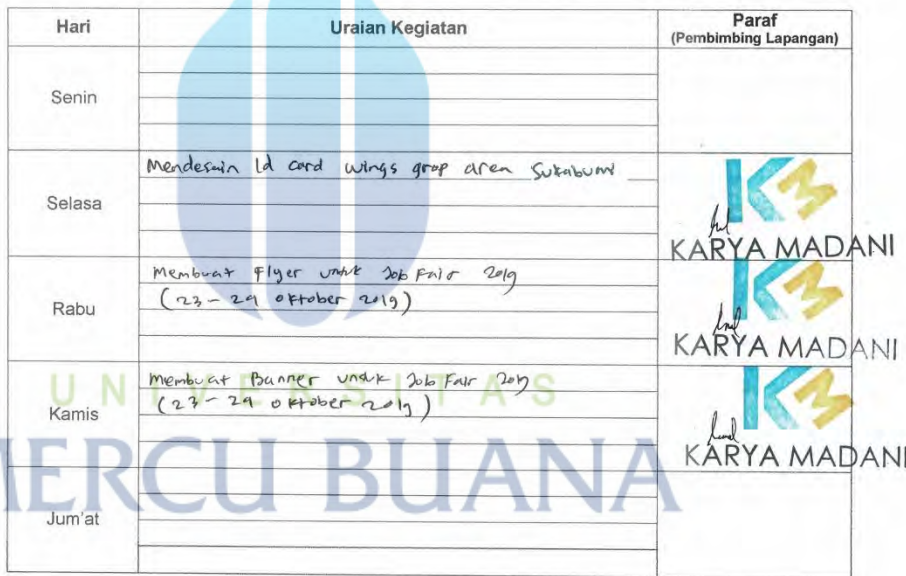 Hari Uraian Kegiatan Paraf
(Pembimbing Lapangan)
Senin
Mendesain Id card wings grop area Sukabumi
Selasa
KM
KARYA MADANI
Membuat Flyer untuk Job Fair 2019
(23 - 29 oktober 2019)
Rabu
KM
KARYA MADANI
Membuat Banner untuk Job Fair 2019
(23 - 29 oktober 2019)
Kamis
KM
KARYA MADANI
UNIVERSITAS
MERCU BUANA
Jum'at